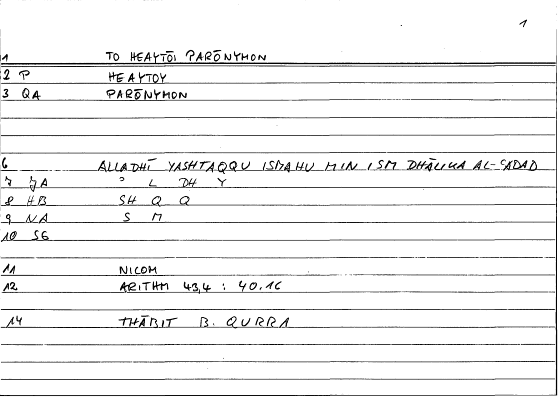 1
1 TO HEAYTŌI PARŌNYMON
2 P HEAYTOY
3 QA PARŌNYMON
6 ALLADHĪ YASHTAQQU ISMAHU MIN ISM DHĀLIKA AL-ʿADAD
7 ʾ L DH Y
8 HB SH Q Q
9 NA S M
10 SG
11 NICOM
12 ARITHM 43,4 : 40.16
14 THĀBIT B. QURRA